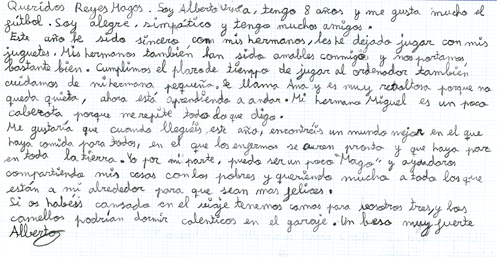 Queridos Reyes Magos. Soy Alberto Urda, tengo 8 años y me gusta mucho el
fútbol. Soy alegre, simpático y tengo muchos amigos.
Este año he sido sincero con mis hermanos, les he dejado jugar con mis
juguetes. Mis hermanos también han sido amables conmigo y nos portamos
bastante bien. Cumplimos el plazo de tiempo de jugar al ordenador también
cuidamos de mi hermana pequeña. Se llama Ana y es muy revoltosa porque no
queda quieta, ahora está aprendiendo a andar. Mi hermano Miguel es un poco
cabezota porque me repite todo lo que digo.
Me gustaría que cuando lleguéis este año, encontréis un mundo mejor en el que
haya comida para todos, en el que los enfermos se curen pronto y que haya paz
en toda la tierra. Yo por mi parte, puedo ser un poco "Mago" y ayudaros
compartiendo mis cosas con los pobres y queriendo mucho a todo los que
están a mi alrededor para que sean mas felices.
Si os habéis cansado en el viaje tenemos camas para vosotros tres, y los
camellos podrían dormir calenticos en el garaje. Un beso muy fuerte
Alberto